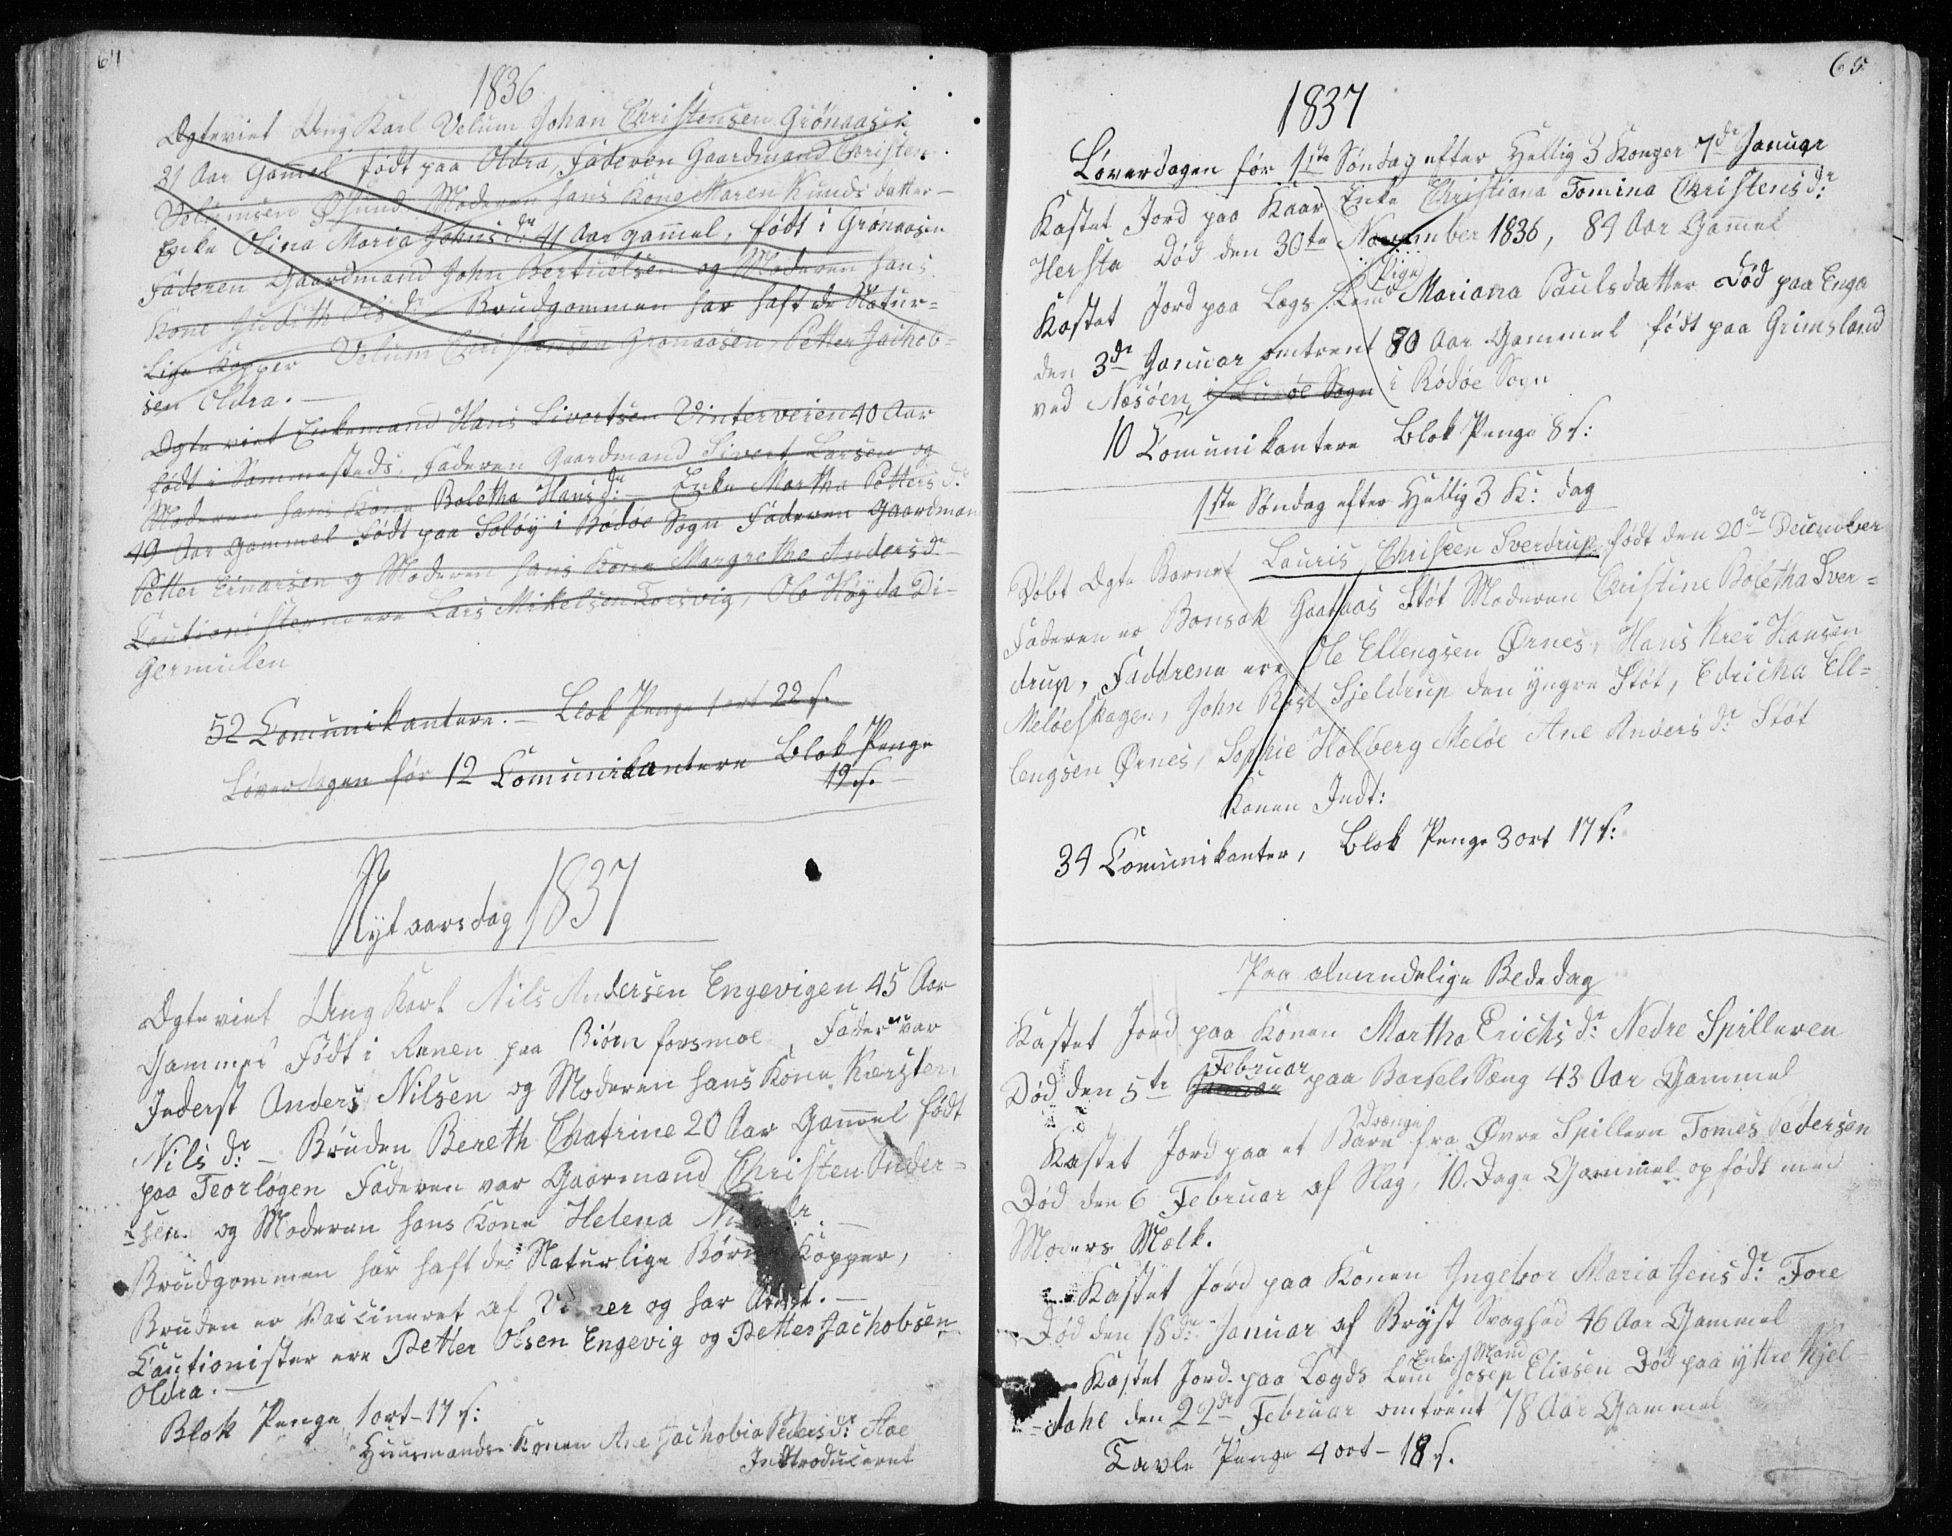 64
1836
Ægteviet Ung Karl Velum Johan Christensen Grönaasen
21 Aar Gam̄el født paa Oldra, Faderen Gaardmand Christen
Øsund. Moderen hans Kone Maren Knudsdatter –
Enke Olina Maria Johnsdr: 41 Aar gam̄el, født i Grönaasen
Faderen Gaardmand John Bertuelsen og Moderen hans
Kone Judith Olsdr – Brudgommen har haft de Natur-
lige Kopper Velum Christensen Grönaasen, Petter Jachob-
sen Oldra. –
Ægteviet Enkemand Hans Sivertsen Vinterveien 40 Aar
født i Sammesteds. Faderen Gaardmand Sivert Larsen og
Moderen hans Kone Boletha Hansdr: – Enke Martha Pettersdr
49 Aar Gammel født paa Seløy i Rödöe Sogn Faderen Gaardman
Petter Einarsen og Moderen hans Kone Margrethe Andersdr –
Cautionisterne ere Lars Mikelsen Torsvig, Ole Høgda Di-
germulen
52 Comunikantere. – Blok Penge 1 ort 22 s.
Løverdagen før 12 Comunikantere Blok Penge
19 s. –
Nytaarsdag 1837
Ægteviet Ung Karl Nils Andersen Engevigen 45 Aar
Gammel Født i Ranen paa Biörn forsmoe, Faderen var
Inderst Anders Nilsen og Moderen hans Kone Kiersten
Nilsdr: – Bruden Bereth Chatrine 20 Aar Gam̄el født
paa Teorlogen Faderen var Gaarmand Christen Ander-
sen. og Moderen hans Kone Helena –
Brudgommen har haft de Naturlige Börne Kopper,
Bruden er Vaccineret af og har Attest. –
Cautionister ere Petter Olsen Engevig og Petter Jachobsen
Oldra. –
Blok Penge 1 ort – 17 s:
Huusmands Konen Ane Jachobia Pedersdr:
Introduceret
65
1837
Løverdagen før 1ste Søndag efter Hellig 3 Konger 7de Januar
Kastet Jord paa Kaar Enke Christiana Tomina Christensdr:
Hersta Død den 30te November 1836, 84 Aar Gam̄el
Kastet Jord paa Lægs Lem Pige Mariana Paulsdatter Død paa Enga
den 3de Januar omtrent 80 Aar Gammel født paa Grimsland
ved Næsöen, i Luröe Sogn i Rödöe Sogn
10 Comunikantere Blok Penge 8 s:
1ste Søndag efter Hellig 3 K: dag
Døbt Ægte Barnet Lauris Christen Sverdrup født den 20de December
Faderen er Bonsak Gaaraas Støt Moderen Christine Boletha Sver-
drup, Faddrene ere Ole Ellengsen Ørnes, Hans Krei Hansen
Melöeskagen, John Rist Sjeldrup den yngre Støt, Edricha Ell-
lengsen Ørnes, Sophie Holberg Melöe Ane Andersdr Støt
Konen Indt:
34 Comunikanter, Blok Penge 3 ort 17 s:
Paa almindelige Bededag
Kastet Jord paa Konen Martha Erichsdr: Nedre Spilleren
Død den 5te Januar Februar paa Barsel Sæng 43 Aar Gammel
Kastet Jord paa et Drænge Barn fra Øvre Spillern Tomes Pedersen
Død den 6 Februar af Slag, 10 Dage Gammel opfødt med
Moders Mælk.
Kastet Jord paa Konen Ingebor Maria Jensdr: Fore
Død den 18de Januar af Bryst Svaghed 46 Aar Gammel
Kastet Jord paa Lægds Lem Enke Mand Josep Eliasen Død paa yttre Kjel-
dahl den 22de Februar omtrent 78 Aar Gammel
Tavle Penge 4 ort – 18 s.